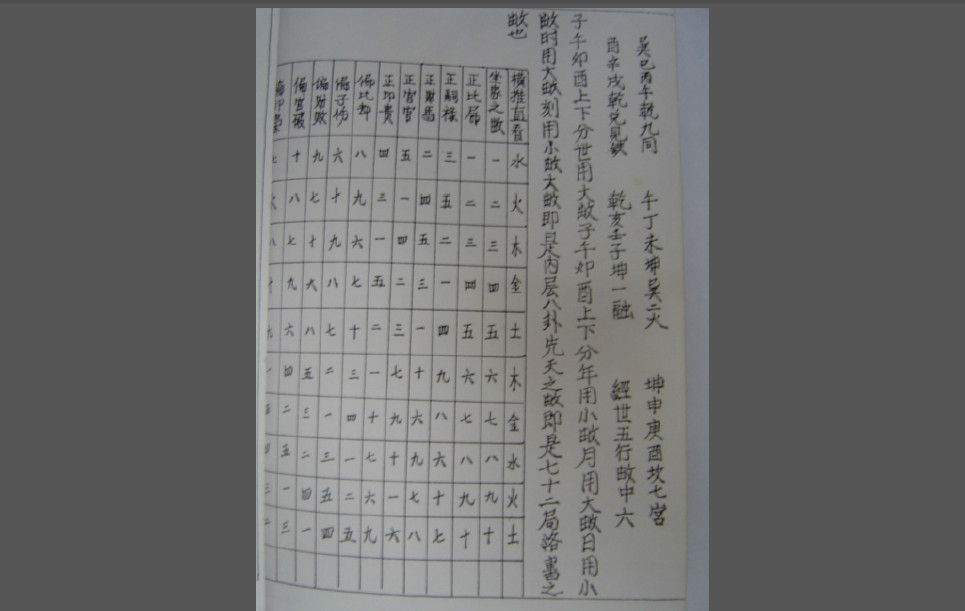 巽巳丙午乾九同　午丁未坤巽二火　坤申庚酉坎七宮
酉辛戌乾兌見　乾亥壬子坤一融　經世五行敀中六
子午卯酉上下分世用大敀子午卯酉上下分年用小敀月用大敀日用小
敀时用大敀刻用小敀大敀即是內层八卦先天之敀即是七十二局洛書之
敀也
橫推直看 水 火 木 金 土 木 金 水 火 土
坐家之敀 一 二 三 四 五 六 七 八 九 十
正比局 一 二 三 四 五 六 七 八 九 十
正嗣祿 三 五 二 一 四 九 八 六 十 七
正財馬 二 四 五 三 一 十 六 九 七 八
正官官 五 一 四 二 三 七 九 十 一 六
正印貴 四 三 一 五 二 一 十 七 六 九
偏比却 八 九 六 七 十 三 四 一 二 五
偏子傷 六 十 九 八 七 二 一 三 五 四
偏財敗 九 七 十 六 八 五 三 二 四 一
偏官破 十 八 七 九 六 四 二 五 一 三